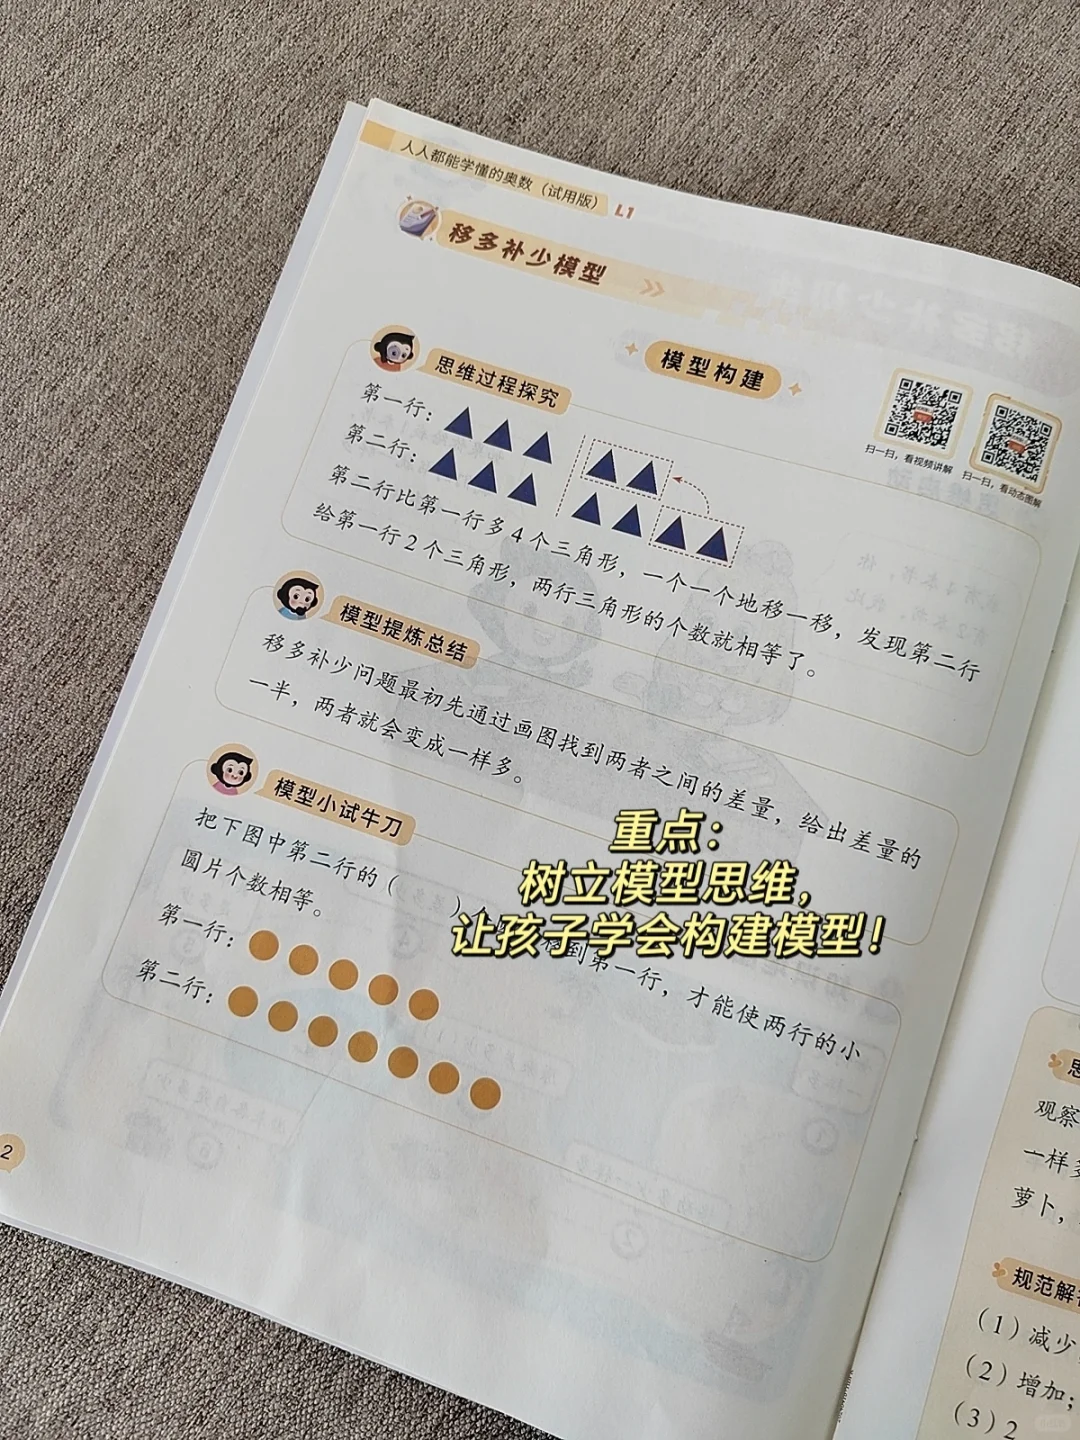 人人都能学懂的奥数（试用版） L1
移多补少模型
模型构建
思维过程探究
扫一扫，看视频讲解
扫一扫，看动态图解
第一行：
第二行：
第二行比第一行多4个三角形，一个一个地移一移，发现第二行
给第一行2个三角形，两行三角形的个数就相等了。
模型提炼总结
移多补少问题最初先通过画图找到两者之间的差量，给出差量的
一半，两者就会变成一样多。
模型小试牛刀
把下图中第二行的（ ）个 移到第一行，才能使两行的小
圆片个数相等。
第一行：
第二行：
重点：
树立模型思维，
让孩子学会构建模型！
2
观察
一样多
萝卜，
规范解答
（1）减少
（2）增加；
（3）2